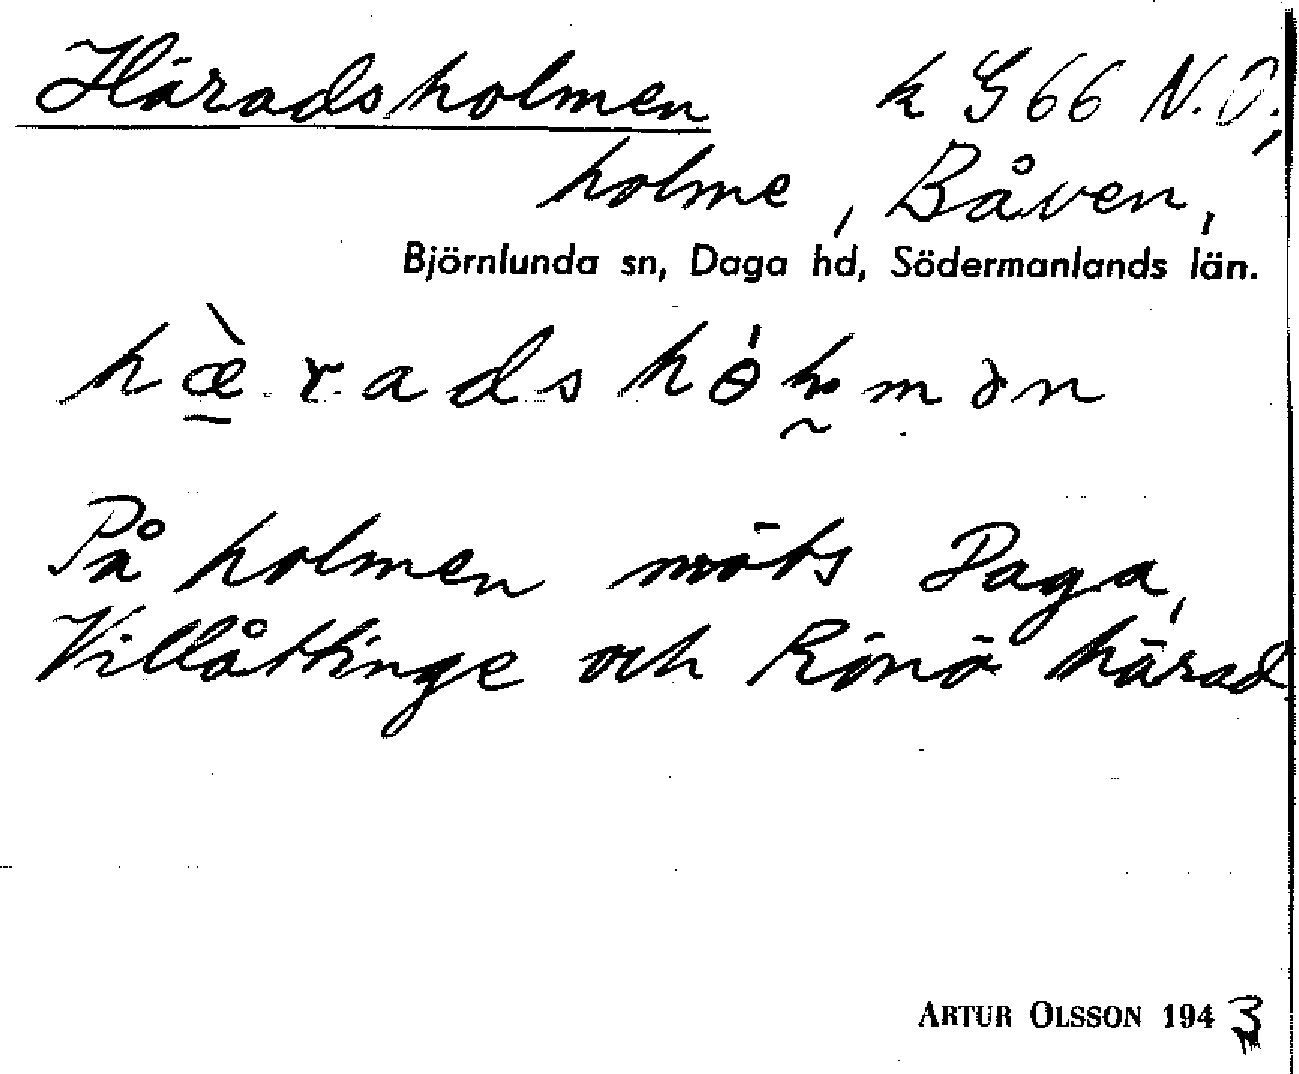 Häradsholmen k G 66 N.Ö.,
holme, Båven,
Björnlunda sn, Daga hd, Södermanlands län.
På holmen möts Daga,
Villåttinge och Rönö härad
ARTUR OLSSON 1943